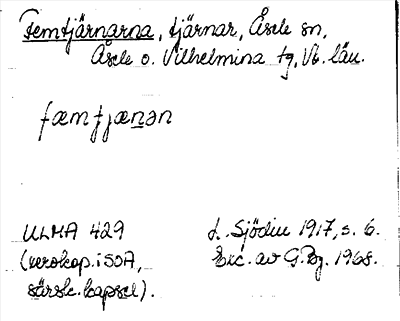 Femtjärnarna, tjärnar, Åsele sn,
Åsele o. Vilhelmina tg, Vb. län.
fæmʄjænən
ULMA 429
(xerokop. i SOA,
särsk. kapsel).
L. Sjödin 1917, s. 6.
Exc. av G. Pg. 1968.